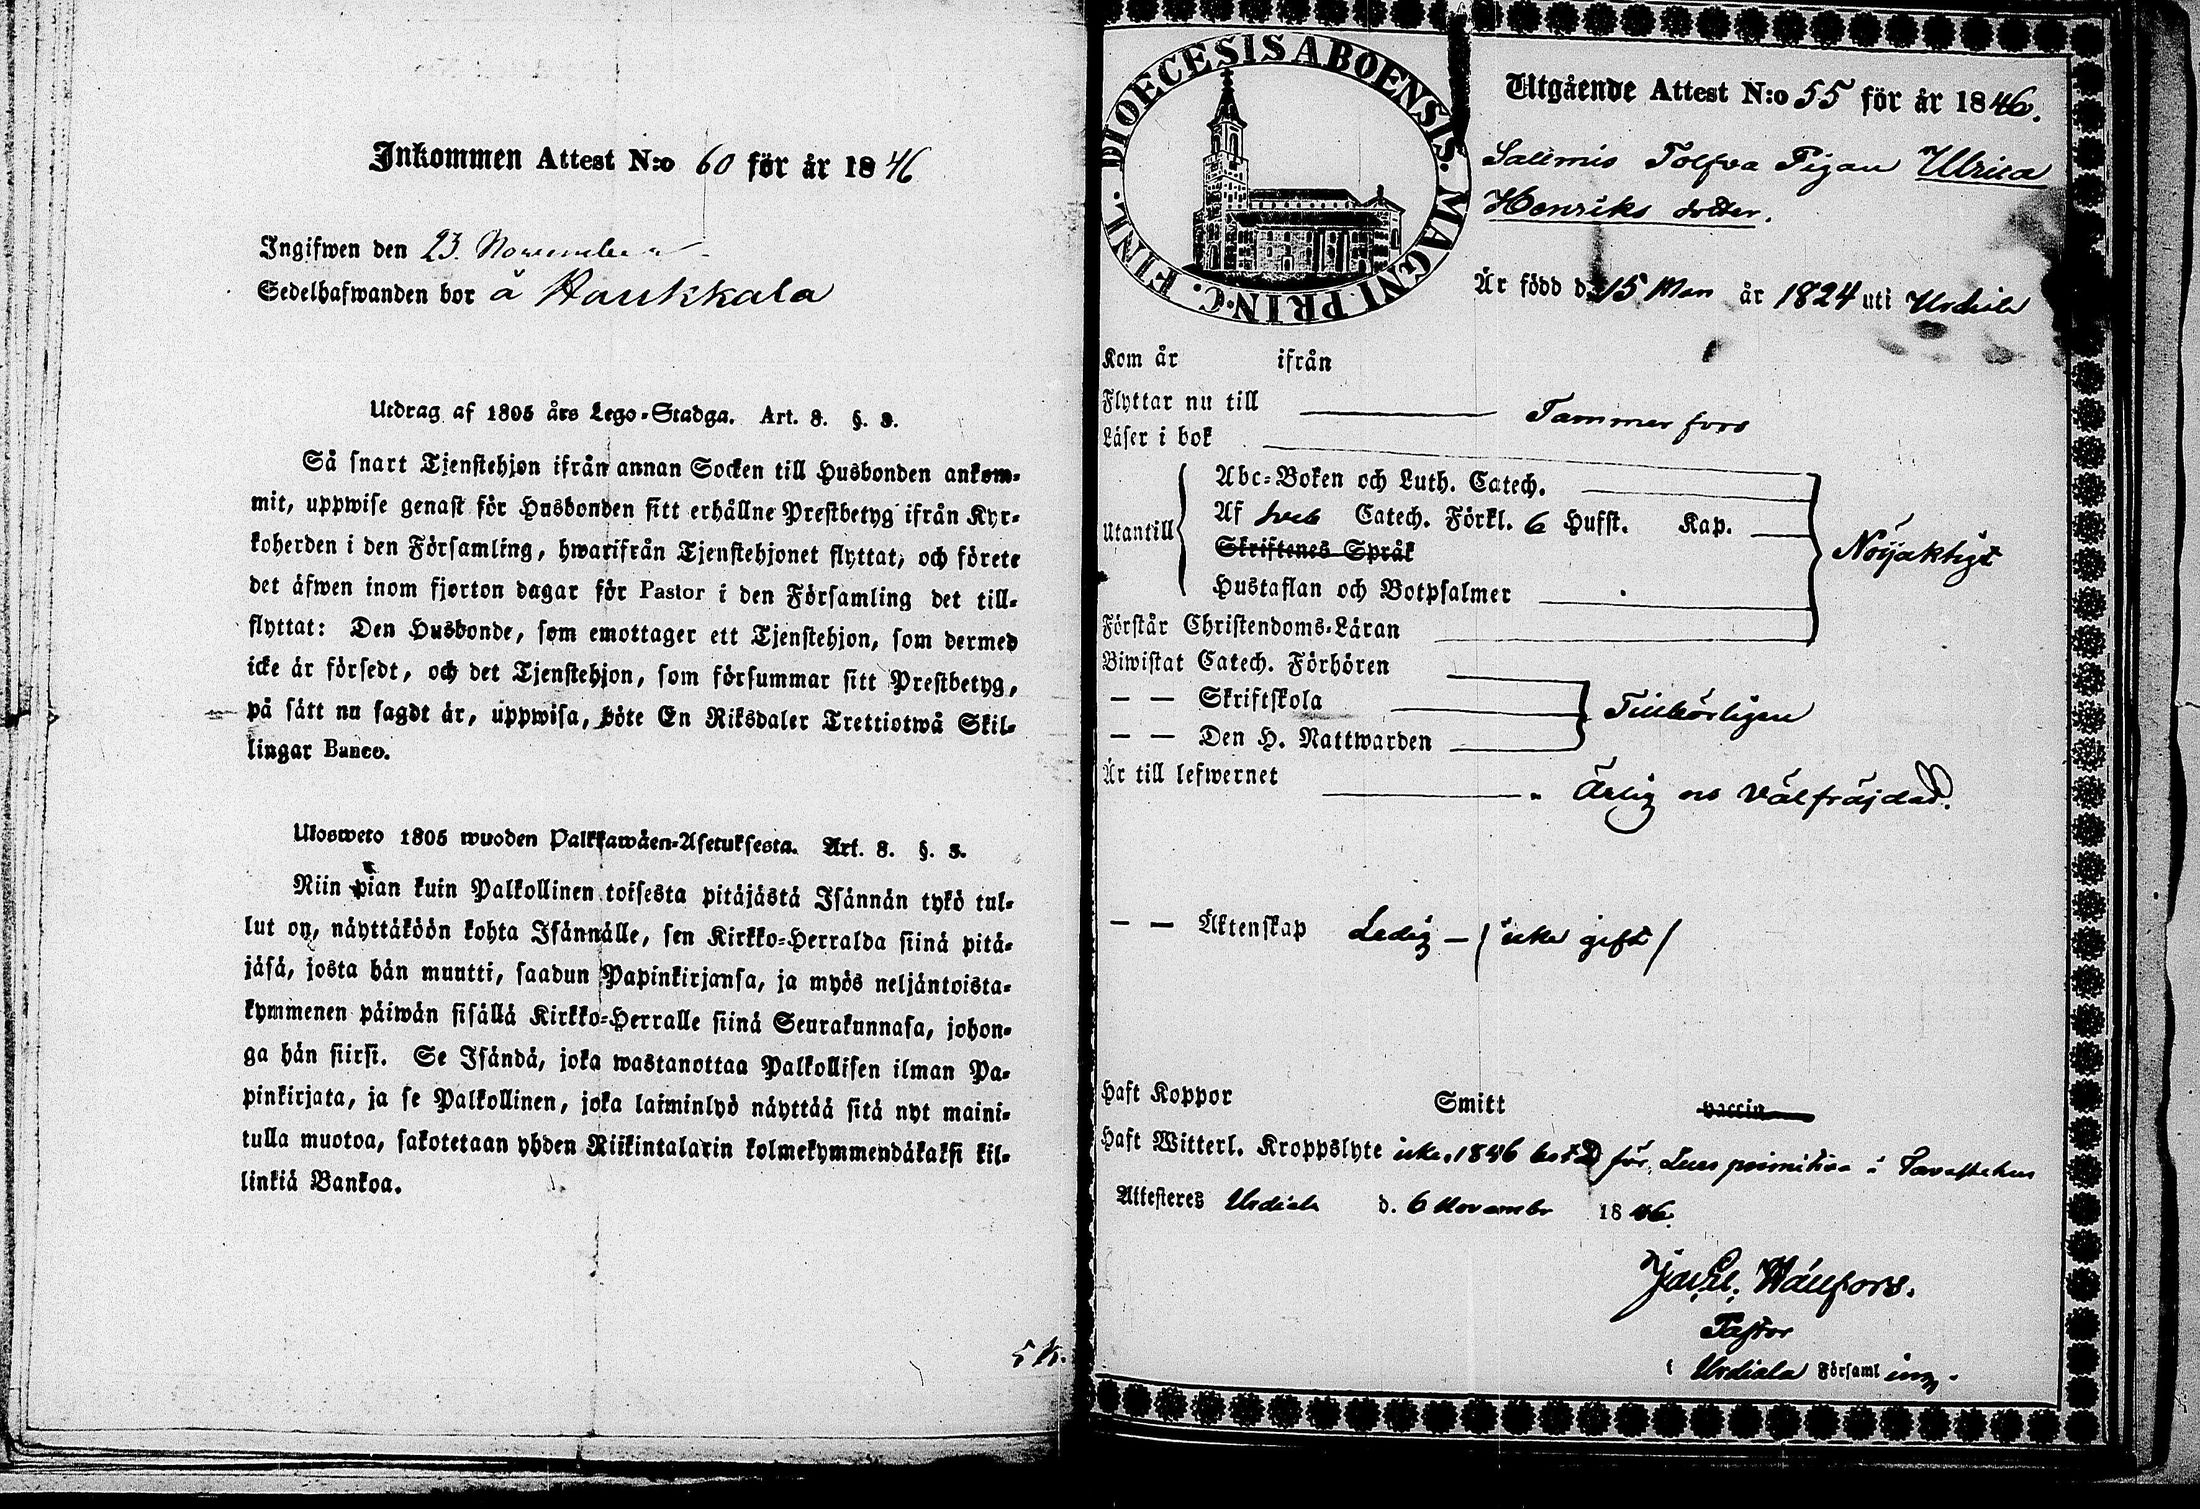 Inkommen Attest N:o 60 för år 1846
Ingifwen den 23. November
Sedelhafwanden bor å Haukkala
Utdrag af 1805 års Lego-Stadga. Art. 8. §. 3.
Så snart Tjenstehjon ifrån annan Socken till Husbonden ankom-
mit, uppwise genast för Husbonden sitt erhållne Prestbetyg ifrån Kyr-
koherden i den Församling, hwarifrån Tjenstehjonet flyttat, och förete
det äfwen inom fjorton dagar för Pastor i den Församling det till-
flyttat: Den Husbonde, som emottager ett Tjenstehjon, som dermed
icke är försedt, och det Tjenstehjon, som försummar sitt Prestbetyg,
på sätt nu sagdt är, uppwisa, böte En Riksdaler Trettiotwå Skil-
lingar Banco.
Ulosweto 1805 wuoden Palkkawäen-Asetuksesta. Art. 8. §. 3.
Niin pian kuin Palkollinen toisesta pitäjästä Isännän tykö tul-
lut on, näyttäköön kohta Isännälle, sen Kirkko-Herralda siinä pitä-
jäsä, josta hän muutti, saadun Papinkirjansa, ja myös neljäntoista-
kymmenen päiwän sisällä Kirkko-Herralle siinä Seurakunnasa, johon-
ga hän siirsi. Se Isändä, joka wastanottaa Palkollisen ilman Pa-
pinkirjata, ja se Palkollinen, joka laiminlyö näyttää sitä nyt maini-
tulla muotoa, sakotetaan yhden Riikintalarin kolmekymmendäkaksi kil-
linkiä Bankoa.
5 k.
DIOECESIS ABOENSIS. MAGNI PRINC. FINL.
Utgående Attest N:o 55 för år 1846.
Salmis Tolfva Pigan Ulrica
Henriks dotter.
Är född d. 15 Man år 1824 uti Urdiala
Kom år ifrån
Flyttar nu till Tammerfors
Läser i bok
Utantill
Abc-Boken och Luth. Catech.
Af Catech. Förkl. 6 Hufst. Kap.
Skriftenes Språk
Hustaflan och Botpsalmer
Nöjaktigt
Förstår Christendoms-Läran
Biwistat Catech. Förhören
— — Skriftskola
— — Den H. Nattwarden
Tillbörligen
Är till lefwernet Ärlig och välfräjdad.
— — Äktenskap Ledig — (icke gift)
Haft Koppor Smitt vaccin
Haft Witterl. Kroppslyte icke. 1846 botad för Lues primitiva i Tavastehus
Attesteres Urdiala d. 6 November 1846.
Pastor
i Urdiala Församling.